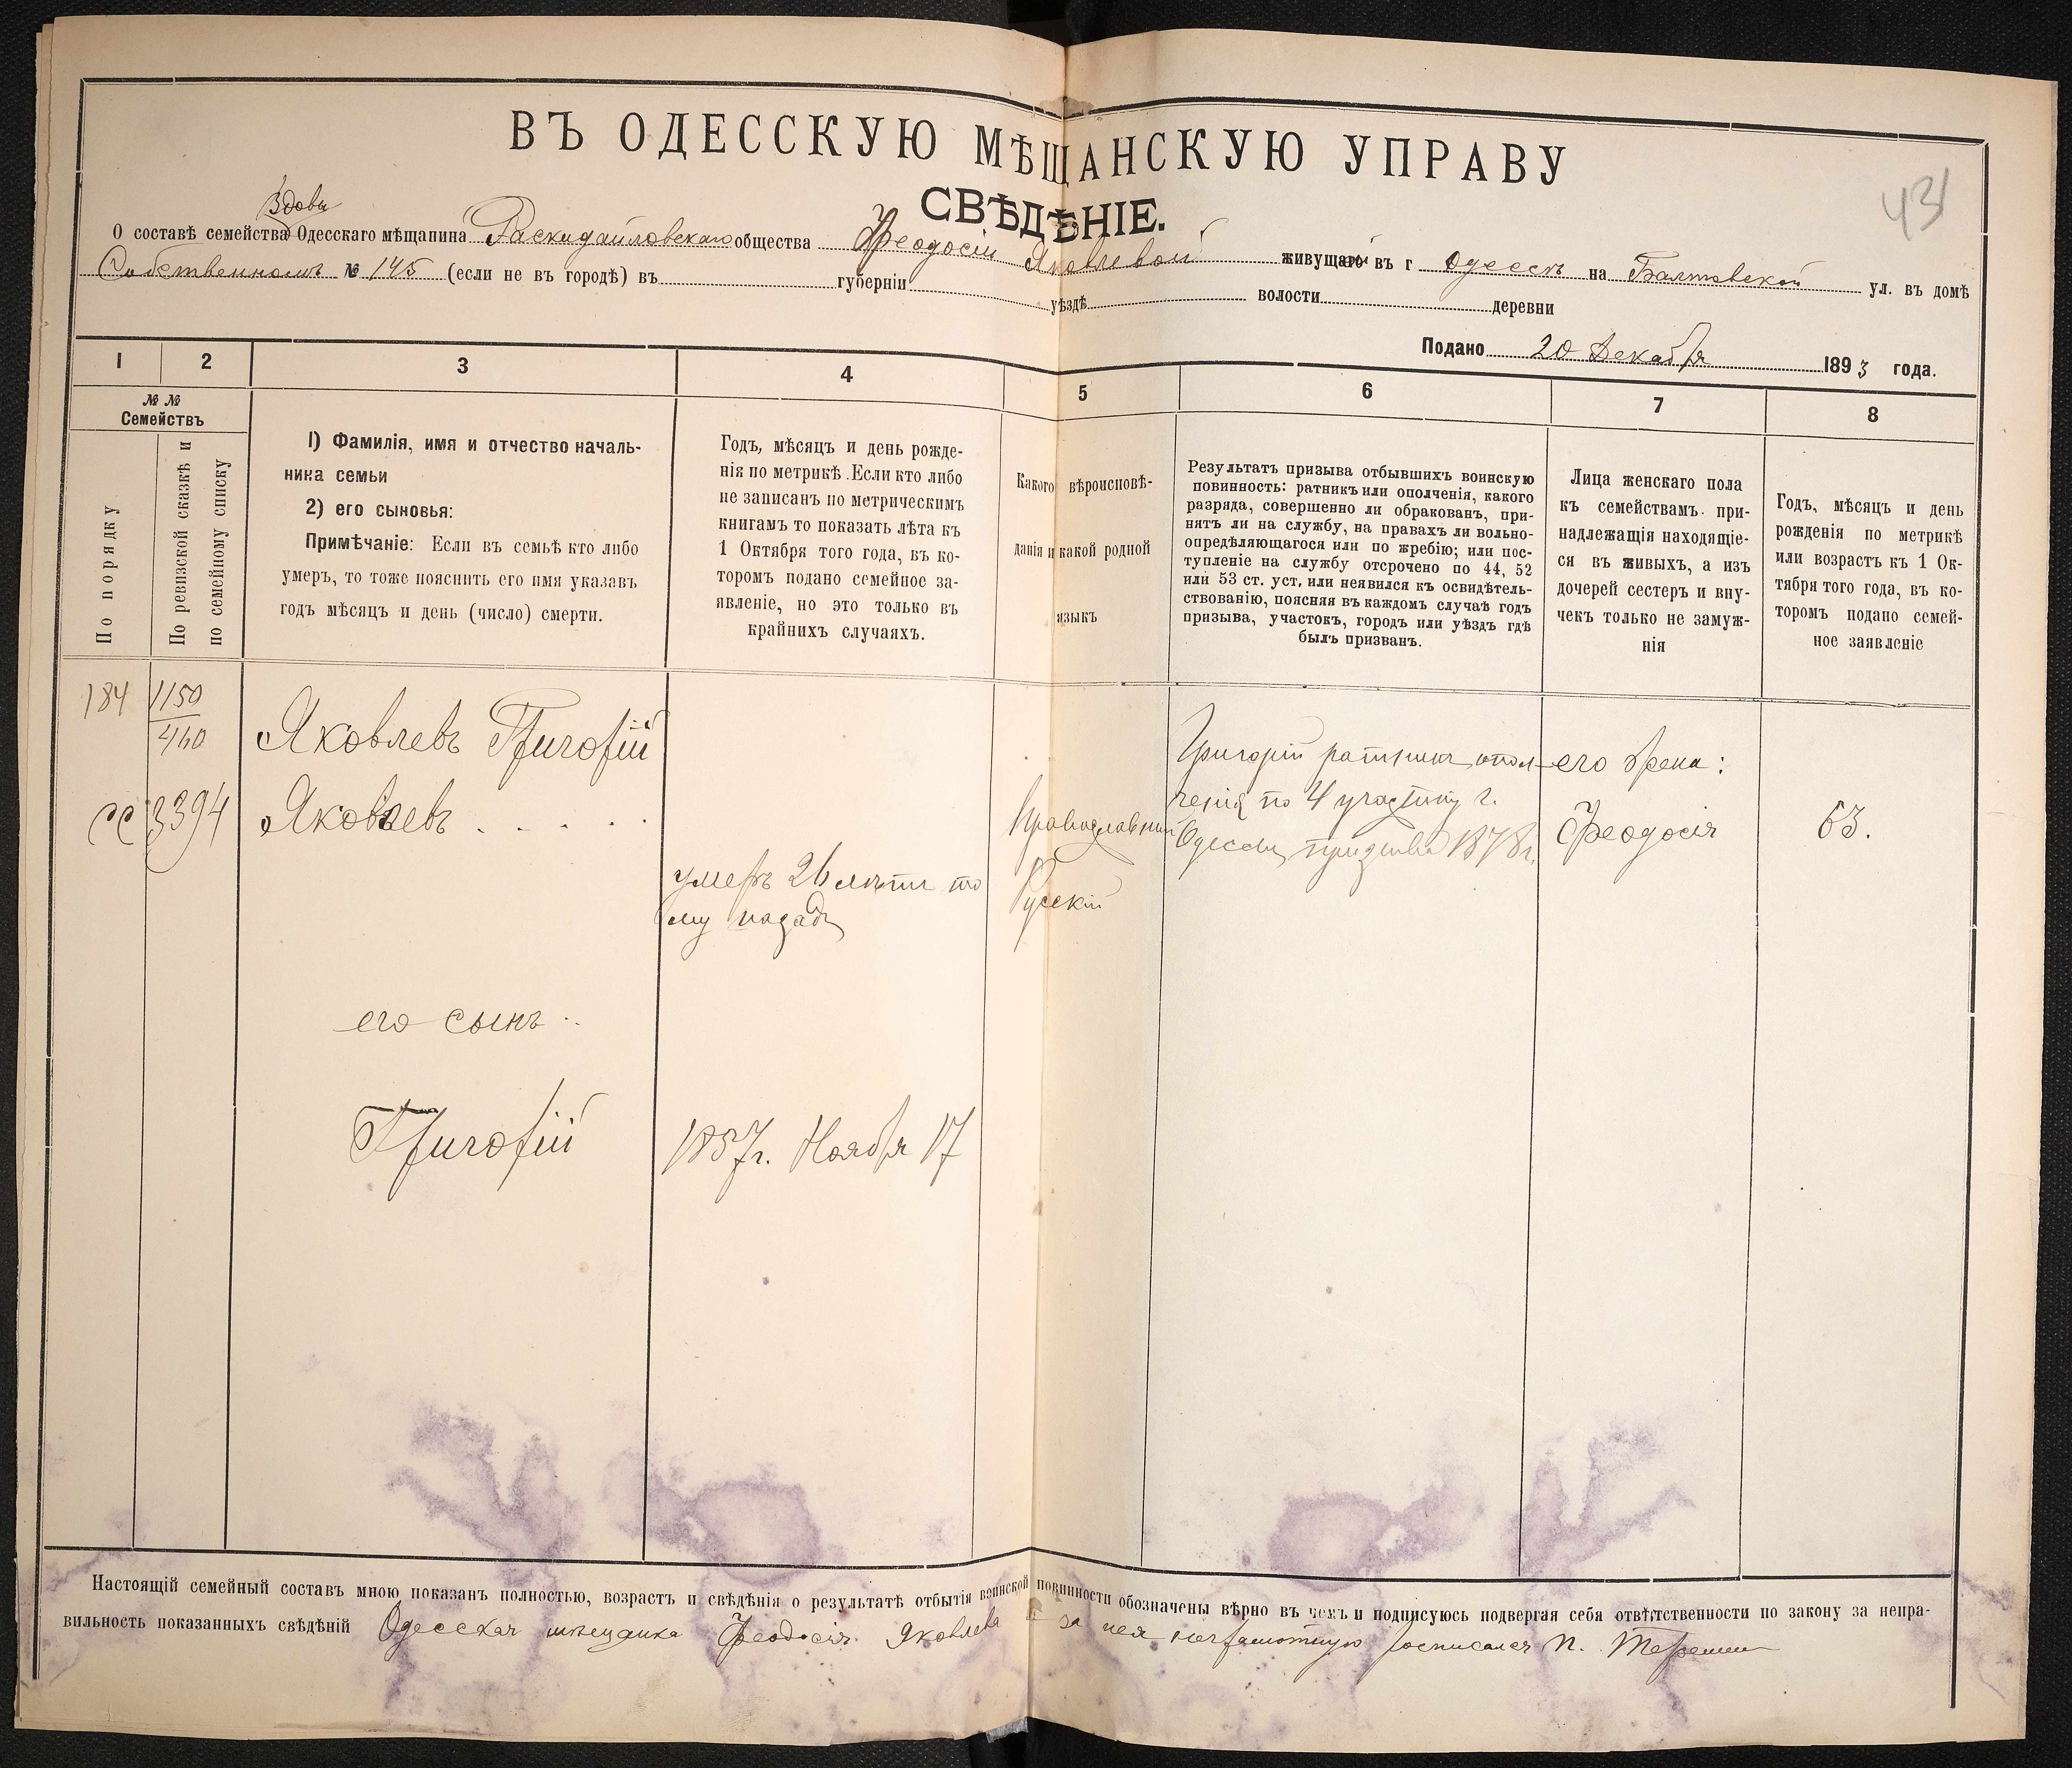 ВЪ ОДЕССКУЮ МѢЩАНСКУЮ УПРАВУ
СВѢДѢНІЕ.
431
Вдовы
О составѣ семейства Одесскаго мѣщанина Раскидайловскаго общества Феодосіи Яковлевой живущей въ г Одессѣ на Балтовской ул. въ домѣ
Собственномъ № 145 (если не въ городѣ) въ губерніи уѣздѣ волости деревни
Подано 20 Декабря 1893 года.
1 2 3 4 5 6 7 8
№ № Семействъ
По порядку
По ревизской сказкѣ и
по семейному списку
1) Фамилія, имя и отчество началь-
ника семьи
2) его сыновья:
Примѣчаніе: Если въ семьѣ кто либо
умеръ, то тоже пояснить его имя указавъ
годъ мѣсяцъ и день (число) смерти.
Годъ, мѣсяцъ и день рожде-
нія по метрикѣ. Если кто либо
не записанъ по метрическимъ
книгамъ то показать лѣта къ
1 Октября того года, въ ко-
торомъ подано семейное за-
явленіе, но это только въ
крайнихъ случаяхъ.
Какого вѣроисповѣ-
данія и какой родной
языкъ
Результатъ призыва отбывшихъ воинскую
повинность: ратникъ или ополченія, какого
разряда, совершенно ли обракованъ, при-
нятъ ли на службу, на правахъ ли вольно-
опредѣляющагося или по жребію; или пос-
тупленіе на службу отсрочено по 44, 52
или 53 ст. уст. или неявился къ освидѣтель-
ствованію, поясняя въ каждомъ случаѣ годъ
призыва, участокъ, городъ или уѣздъ гдѣ
былъ призванъ.
Лица женскаго пола
къ семействамъ при-
надлежащія находящіе-
ся въ живыхъ, а изъ
дочерей сестеръ и вну-
чекъ только не замуж-
нія
Годъ, мѣсяцъ и день
рожденія по метрикѣ
или возрастъ къ 1 Ок-
тября того года, въ ко-
торомъ подано семей-
ное заявленіе
184 1150
460
Яковлевъ Григорій
3394 Яковлевъ . . . . .
умеръ 26 лѣтъ то
му назадъ
Православный
Русскій
Григорій ратникъ опол-
ченія по 4 участку г.
Одессы призыва 1878 г.
его жена:
Феодосія
63.
его сынъ..
Григорій
1857 г. Ноября 17
Настоящій семейный составъ мною показанъ полностью, возрастъ и свѣдѣнія о результатѣ отбытія воинской повинности обозначены вѣрно въ чемъ и подписуюсь подвергая себя отвѣтственности по закону за непра-
вильность показанныхъ свѣдѣній Одесская мѣщанка Феодосія Яковлева за нея неграмотную росписался П.